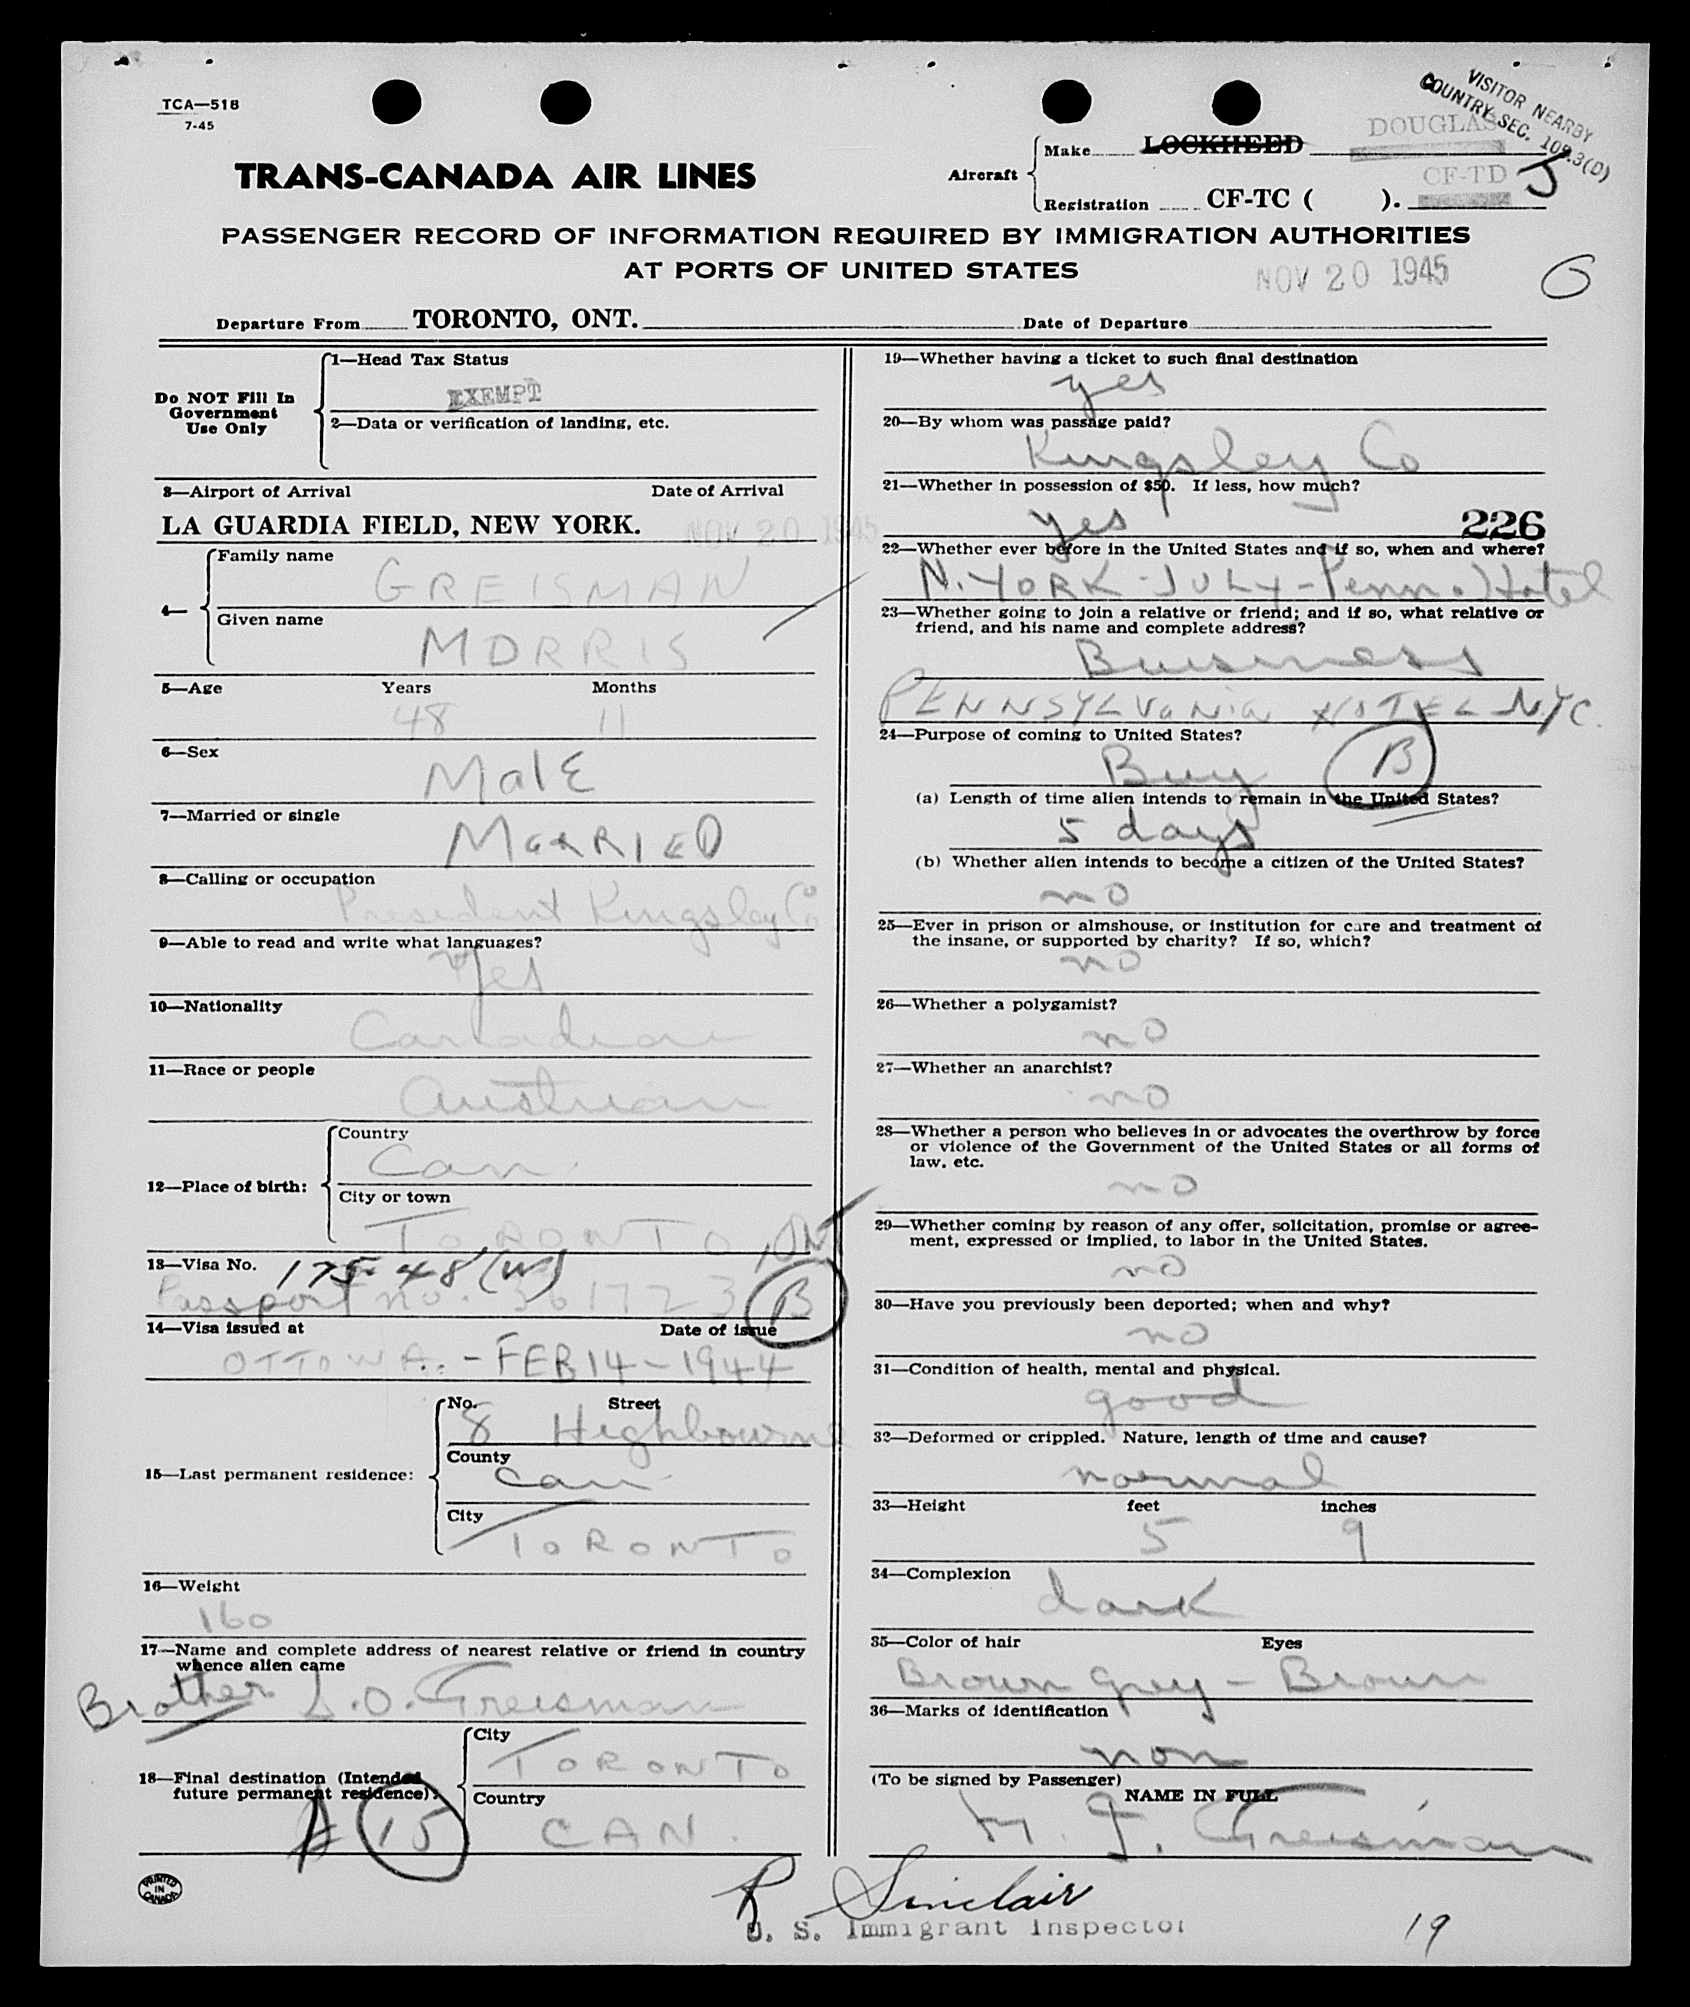 TCA—518
7-45
VISITOR NEARBY
COUNTRY SEC. 105.3(D)
TRANS-CANADA AIR LINES
Aircraft
Make LOCKHEED DOUGLAS
Registration CF-TC ( ). CF-TD J
PASSENGER RECORD OF INFORMATION REQUIRED BY IMMIGRATION AUTHORITIES
AT PORTS OF UNITED STATES
NOV 20 1945
Departure From TORONTO, ONT. Date of Departure
Do NOT Fill In
Government
Use Only
1—Head Tax Status
EXEMPT
2—Data or verification of landing, etc.
3—Airport of Arrival Date of Arrival
LA GUARDIA FIELD, NEW YORK. NOV 20 1945
4—
Family name
GREISMAN
Given name
MORRIS
5—Age Years Months
48 11
6—Sex
MalE
7—Married or single
MaRRIED
8—Calling or occupation
President Kingsley Co
9—Able to read and write what languages?
Yes
10—Nationality
Canadian
11—Race or people
Austrian
12—Place of birth:
Country
Can.
City or town
TORONTO, ONT
13—Visa No. 175-48 (W)
Passport no. 361723 B
14—Visa issued at Date of issue
OTTOWA. - FEB 14 - 1944
15—Last permanent residence:
No. Street
8 Highbourne
County
Can
City
TORONTO
16—Weight
160
17—Name and complete address of nearest relative or friend in country
whence alien came
Brother L.O. Greisman
18—Final destination (Intended
future permanent residence):
City
TORONTO
Country
CAN.
A 15
PRINTED
IN
CANADA
19—Whether having a ticket to such final destination
yes
20—By whom was passage paid?
Kingsley Co
21—Whether in possession of $50. If less, how much?
yes 226
22—Whether ever before in the United States and if so, when and where?
N. YORK - JULY - Penn. Hotel
23—Whether going to join a relative or friend; and if so, what relative or
friend, and his name and complete address?
Buisness
PENNSYLVaNia HOTEL NYC.
24—Purpose of coming to United States?
Buy B
(a) Length of time alien intends to remain in the United States?
5 days
(b) Whether alien intends to become a citizen of the United States?
no
25—Ever in prison or almshouse, or institution for care and treatment of
the insane, or supported by charity? If so, which?
no
26—Whether a polygamist?
no
27—Whether an anarchist?
no
28—Whether a person who believes in or advocates the overthrow by force
or violence of the Government of the United States or all forms of
law, etc.
no
29—Whether coming by reason of any offer, solicitation, promise or agree-
ment, expressed or implied, to labor in the United States.
no
30—Have you previously been deported; when and why?
no
31—Condition of health, mental and physical.
good
32—Deformed or crippled. Nature, length of time and cause?
normal
33—Height feet inches
5 9
34—Complexion
dark
35—Color of hair Eyes
Brown grey - Brown
36—Marks of identification
non
(To be signed by Passenger)
NAME IN FULL
Greisman
R Sinclair
U. S. Immigrant Inspector
19